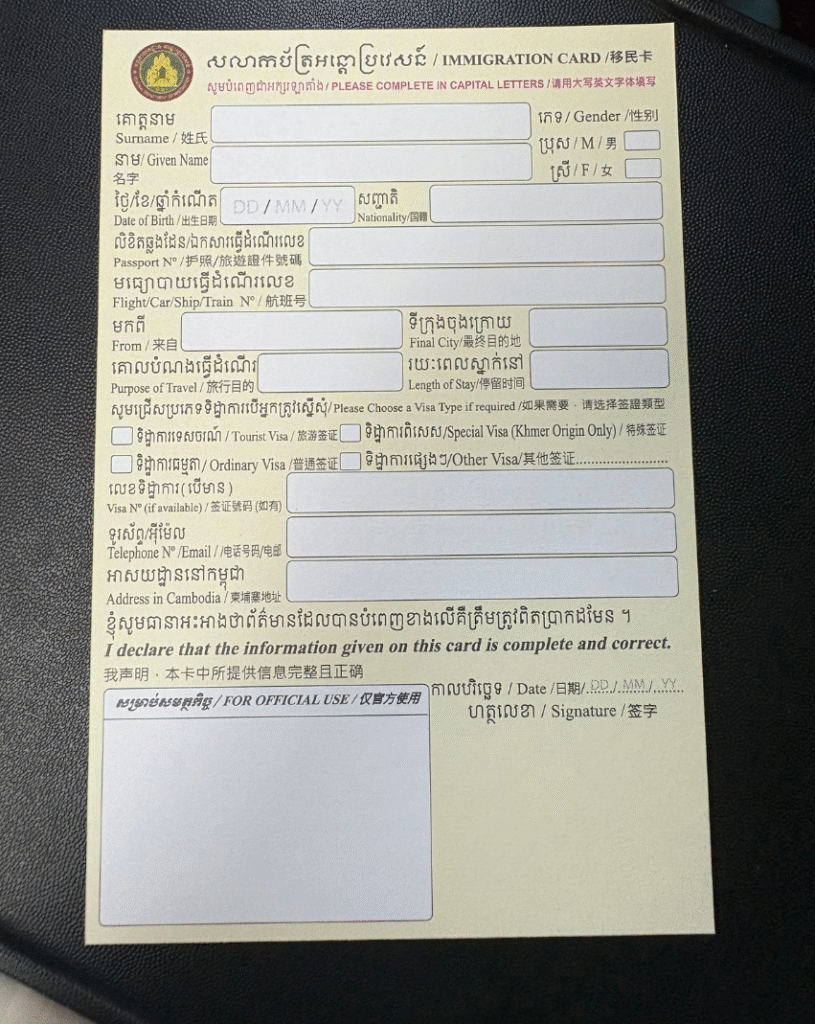 សលាកប័ត្រអន្តោប្រវេសន៍ / IMMIGRATION CARD /移民卡
សូមបំពេញជាអក្សរឡាតាំង/ PLEASE COMPLETE IN CAPITAL LETTERS /请用大写英文字体填写
គោត្តនាម
Surname / 姓氏
ភេទ/ Gender /性别
ប្រុស / M / 男
នាម/ Given Name
名字
ស្រី / F / 女
ថ្ងៃ/ខែ/ឆ្នាំកំណើត
Date of Birth /出生日期
DD / MM / YY
សញ្ជាតិ
Nationality/国籍
លិខិតឆ្លងដែន/ឯកសារធ្វើដំណើរលេខ
Passport Nº /护照/旅遊證件號碼
មធ្យោបាយធ្វើដំណើរលេខ
Flight/Car/Ship/Train Nº / 航班号
មកពី
From / 来自
ទីក្រុងចុងក្រោយ
Final City/最终目的地
គោលបំណងធ្វើដំណើរ
Purpose of Travel / 旅行目的
រយៈពេលស្នាក់នៅ
Length of Stay/停留时间
សូមជ្រើសប្រភេទទិដ្ឋាការបើអ្នកត្រូវស្នើសុំ/Please Choose a Visa Type if required /如果需要﹐请选择签證類型
ទិដ្ឋាការទេសចរណ៍ / Tourist Visa / 旅游签证
ទិដ្ឋាការពិសេស/Special Visa (Khmer Origin Only) / 特殊签证
ទិដ្ឋាការធម្មតា/ Ordinary Visa /普通签证
ទិដ្ឋាការផ្សេងៗ/Other Visa/其他签证........................
លេខទិដ្ឋាការ(បើមាន)
Visa Nº (if available) / 签证號码 (如有)
ទូរស័ព្ទ/អ៊ីម៉ែល
Telephone Nº /Email / /电话号码/电邮
អាសយដ្ឋាននៅកម្ពុជា
Address in Cambodia / 柬埔寨地址
ខ្ញុំសូមធានាអះអាងថាព័ត៌មានដែលបានបំពេញខាងលើគឺត្រឹមត្រូវពិតប្រាកដមែន ។
I declare that the information given on this card is complete and correct.
我声明﹐本卡中所提供信息完整且正确
សម្រាប់សមត្ថកិច្ច / FOR OFFICIAL USE / 仅官方使用
កាលបរិច្ឆេទ / Date /日期/.DD./..MM../...YY..
ហត្ថលេខា / Signature /签字